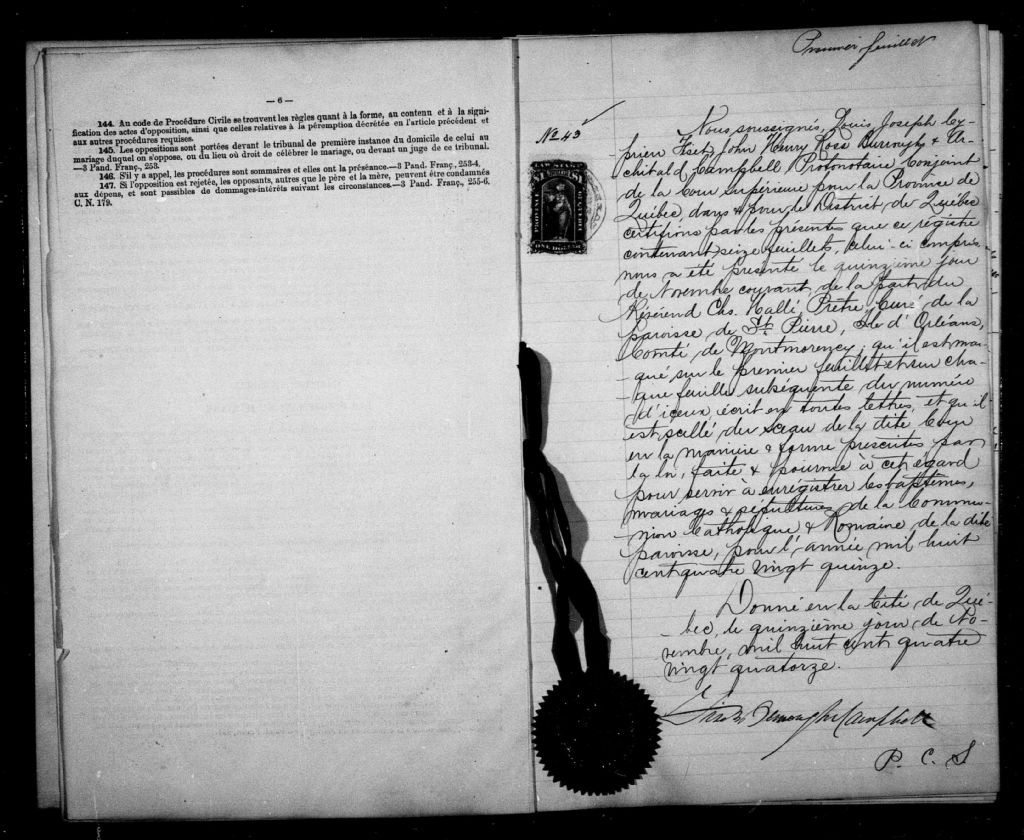 — 6 —
144. Au code de Procédure Civile se trouvent les règles quant à la forme, au contenu et à la signi-
fication des actes d'opposition, ainsi que celles relatives à la péremption décrétée en l'article précédent et
aux autres procédures requises.
145. Les oppositions sont portées devant le tribunal de première instance du domicile de celui au
mariage duquel on s'oppose, ou du lieu où droit de célébrer le mariage, ou devant un juge de ce tribunal.
—3 Pand. Franç, 253.
146. S'il y a appel, les procédures sont sommaires et elles ont la préséance.—3 Pand. Franç, 253-4,
147. Si l'opposition est rejetée, les opposants, autres que le père et la mère, peuvent être condamnés
aux dépens, et sont passibles de dommages-intérêts suivant les circonstances.—3 Pand. Franç., 255-6.
C. N. 179.
Premier feuillet
No 43
LAW STAMP
ONE DOLLAR
Nous, soussignés, Louis Joseph Cy-
prien Fiset, John Henry Ross Burroughs & Ar-
chibald Campbell Protonotaire Conjoint
de la Cour Supérieure pour la Province de
Québec, dans & pour le District de Québec
certifions par les présentes que ce registre
contenant seize feuillets, celui-ci compris
nous a été présenté le quinzième jour
de Novembre courant de la part du
Révérend Chs. Hallé, Prêtre, Curé de la
paroisse de St. Pierre, Ile d'Orléans,
Comté de Montmorency; qu'il est mar-
qué sur le premier feuillet et sur cha-
que feuille subséquente du numéro
d'iceux, écrit en toutes lettres, et qu'il
est scellé du sceau de la dite Cour
en la manière & forme prescrites par
la loi, faite & pourvue à cet égard
pour servir à enregistrer les baptêmes,
mariages & sépultures de la Commu-
nion Catholique & Romaine de la dite
paroisse, pour l'année mil huit
cent quatre vingt quinze.
Donné en la Cité de Qué-
bec, le quinzième jour de No-
vembre, mil huit cent quatre
vingt quatorze.
Fiset Burroughs Campbell
P. C. S